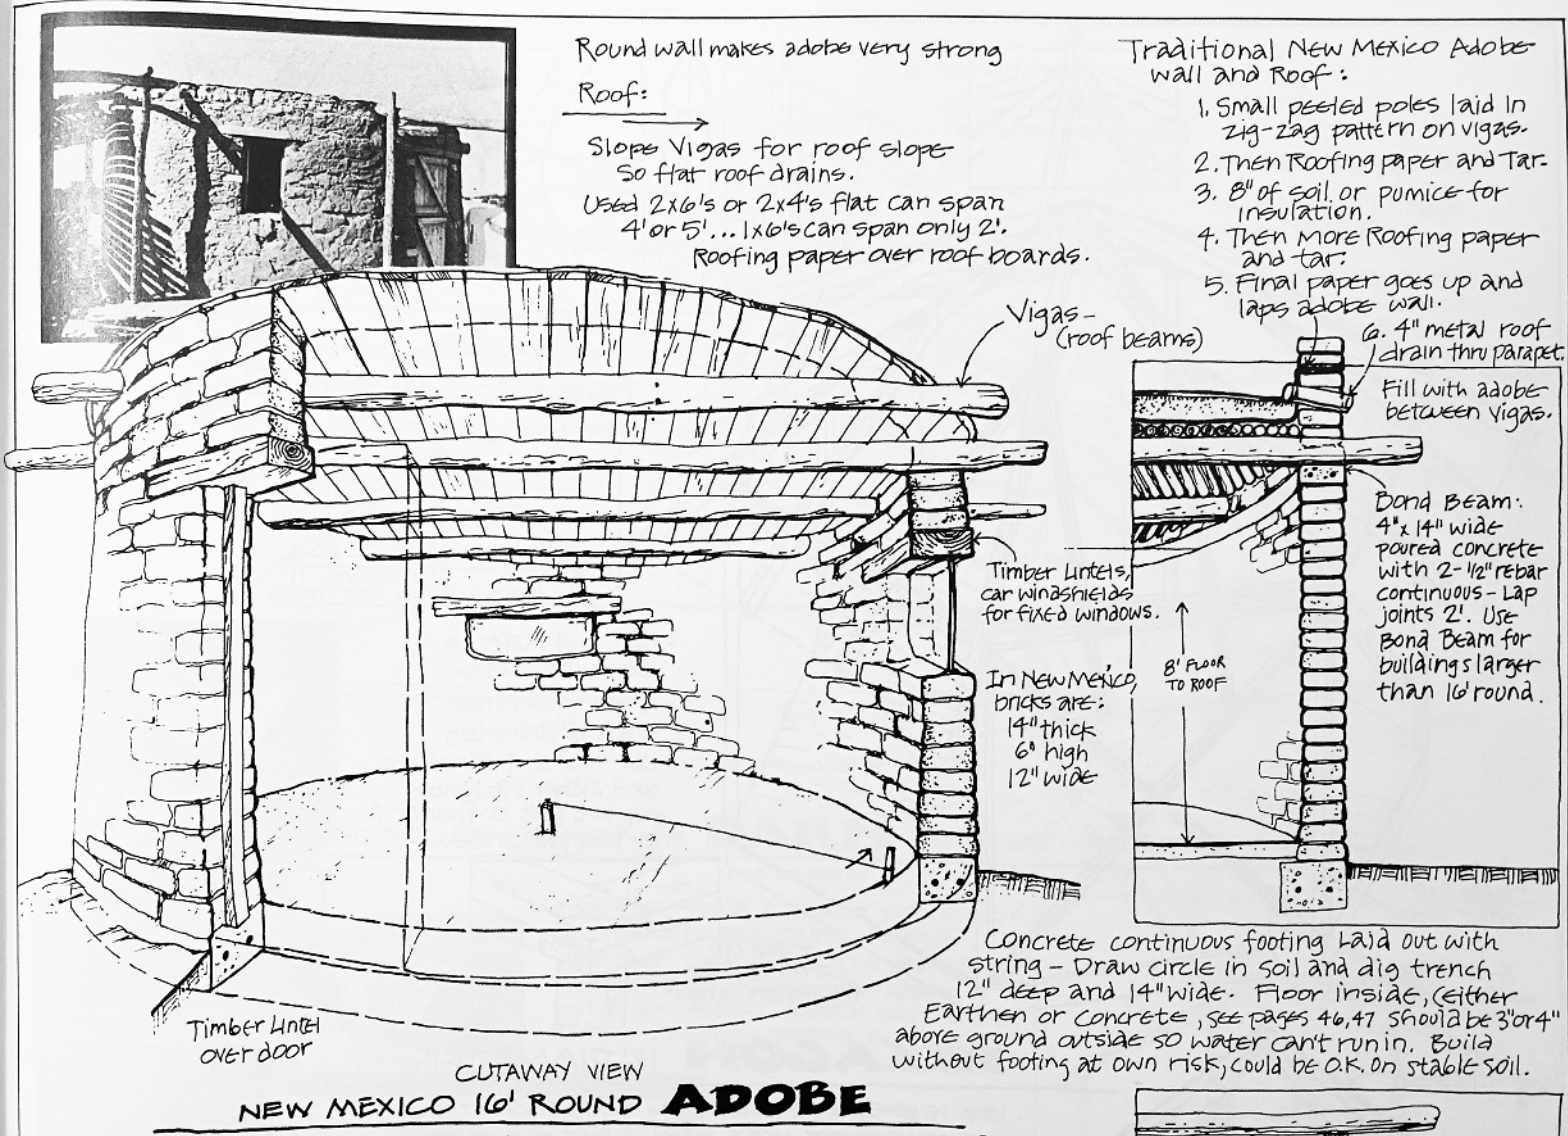 Round wall makes adobe very strong
Roof:
Slope Vigas for roof slope
So flat roof drains.
Used 2x6's or 2x4's flat can span
4' or 5'... 1x6's can span only 2'.
Roofing paper over roof boards.
Traditional New Mexico Adobe
wall and Roof:
1. Small peeled poles laid in
zig-zag pattern on vigas.
2. Then Roofing paper and Tar.
3. 8" of soil or pumice for
insulation.
4. Then more Roofing paper
and tar.
5. Final paper goes up and
laps adobe wall.
6. 4" metal roof
drain thru parapet.
Vigas-
(roof beams)
Fill with adobe
between vigas.
Bond Beam:
4" x 14" wide
poured concrete
with 2-1/2" rebar
continuous - Lap
joints 2'. Use
Bond Beam for
buildings larger
than 16' round.
Timber Lintels,
car windshields
for fixed windows.
8' FLOOR
TO ROOF
In New Mexico,
bricks are:
14" thick
6" high
12" wide
Concrete continuous footing Laid out with
string - Draw circle in soil and dig trench
12" deep and 14" wide. Floor inside, (either
Earthen or Concrete, see pages 46, 47 should be 3" or 4"
above ground outside so water can't run in. Build
without footing at own risk, could be O.K. on stable soil.
Timber Lintel
over door
CUTAWAY VIEW
NEW MEXICO 16' ROUND ADOBE